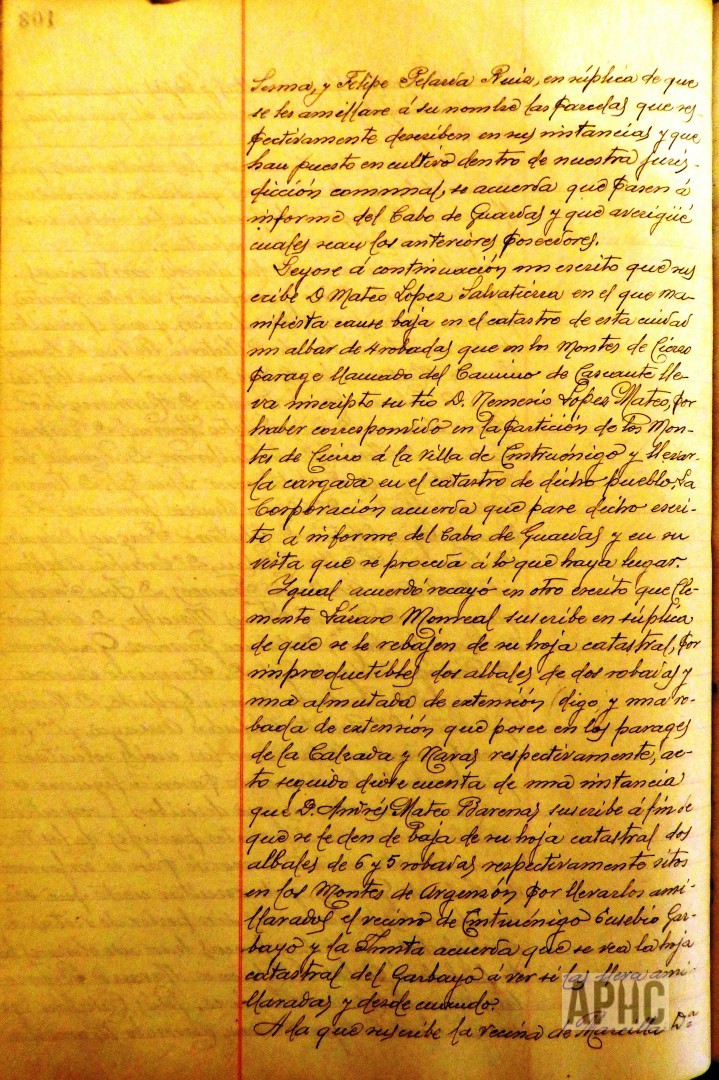 108
Serma, y Felipe Pelarda Ruiz, en súplica de que
se les amillare á su nombre las parcelas que res-
pectivamente describen en sus instancias y que
han puesto en cultivo dentro de nuestra juris-
dicción comunal, se acuerda que pasen á
informe del Cabo de Guardas y que averigüe
cuales sean los anteriores poseedores.
Leyose á continuación un escrito que sus
cribe D Mateo López Salvatierra en el que ma-
nifiesta cause baja en el catastro de esta ciudad
un albar de 4 robadas que en los Montes de Cierzo
parage llamado del Camino de Cascante lle-
va inscripto su tío D. Nemesio López Mateo, por
haber correspondido en la partición de los Mon-
tes de Cierzo á la villa de Cintruénigo y llevar-
la cargada en el catastro de dicho pueblo. La
Corporación acuerda que pase dicho escri-
to á informe del Cabo de Guardas y en su
vista que se proceda á lo que haya lugar.
Igual acuerdo recayó en otro escrito que Cle-
mente Lázaro Monreal suscribe en súplica
de que se le rebajen de su hoja catastral, por
improductibles dos albales de dos robadas y
una almutada de extensión digo, y una ro-
bada de extensión que posee en los parages
de la Calzada y Navas respectivamente, ac-
to seguido diose cuenta de una instancia
que D. Andrés Mateo Barenas suscribe á fin de
que se le den de baja de su hoja catastral dos
albales de 6 y 5 robadas respectivamente sitos
en los Montes de Argenzón por llevarlos ami-
llarados el vecino de Cintruénigo Eusebio Gar-
bayo y la Junta acuerda que se vea la hoja
catastral del Garbayo á ver si las lleva ami-
llaradas y desde cuando?
A la que suscribe la vecina de Marcilla Dª
APHC